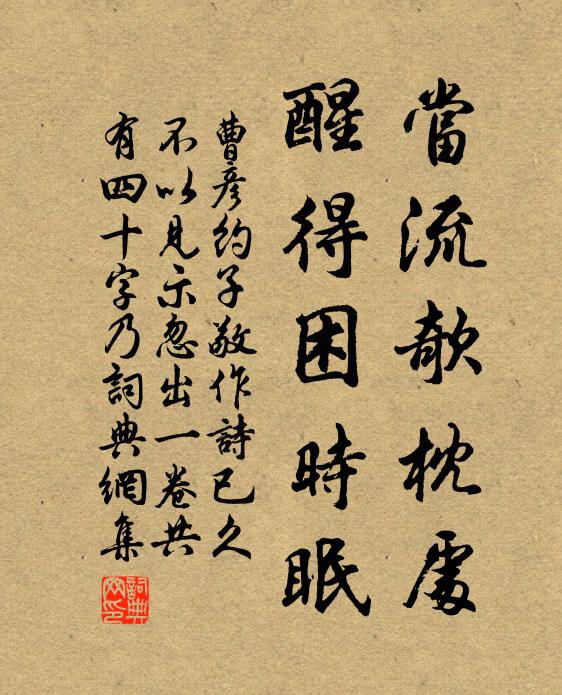 當流欹枕處
醒得困時眠
曹彥約子敬作詩已久
不以見示忽出一卷共
有四十字乃詞典網集
詞典
网印